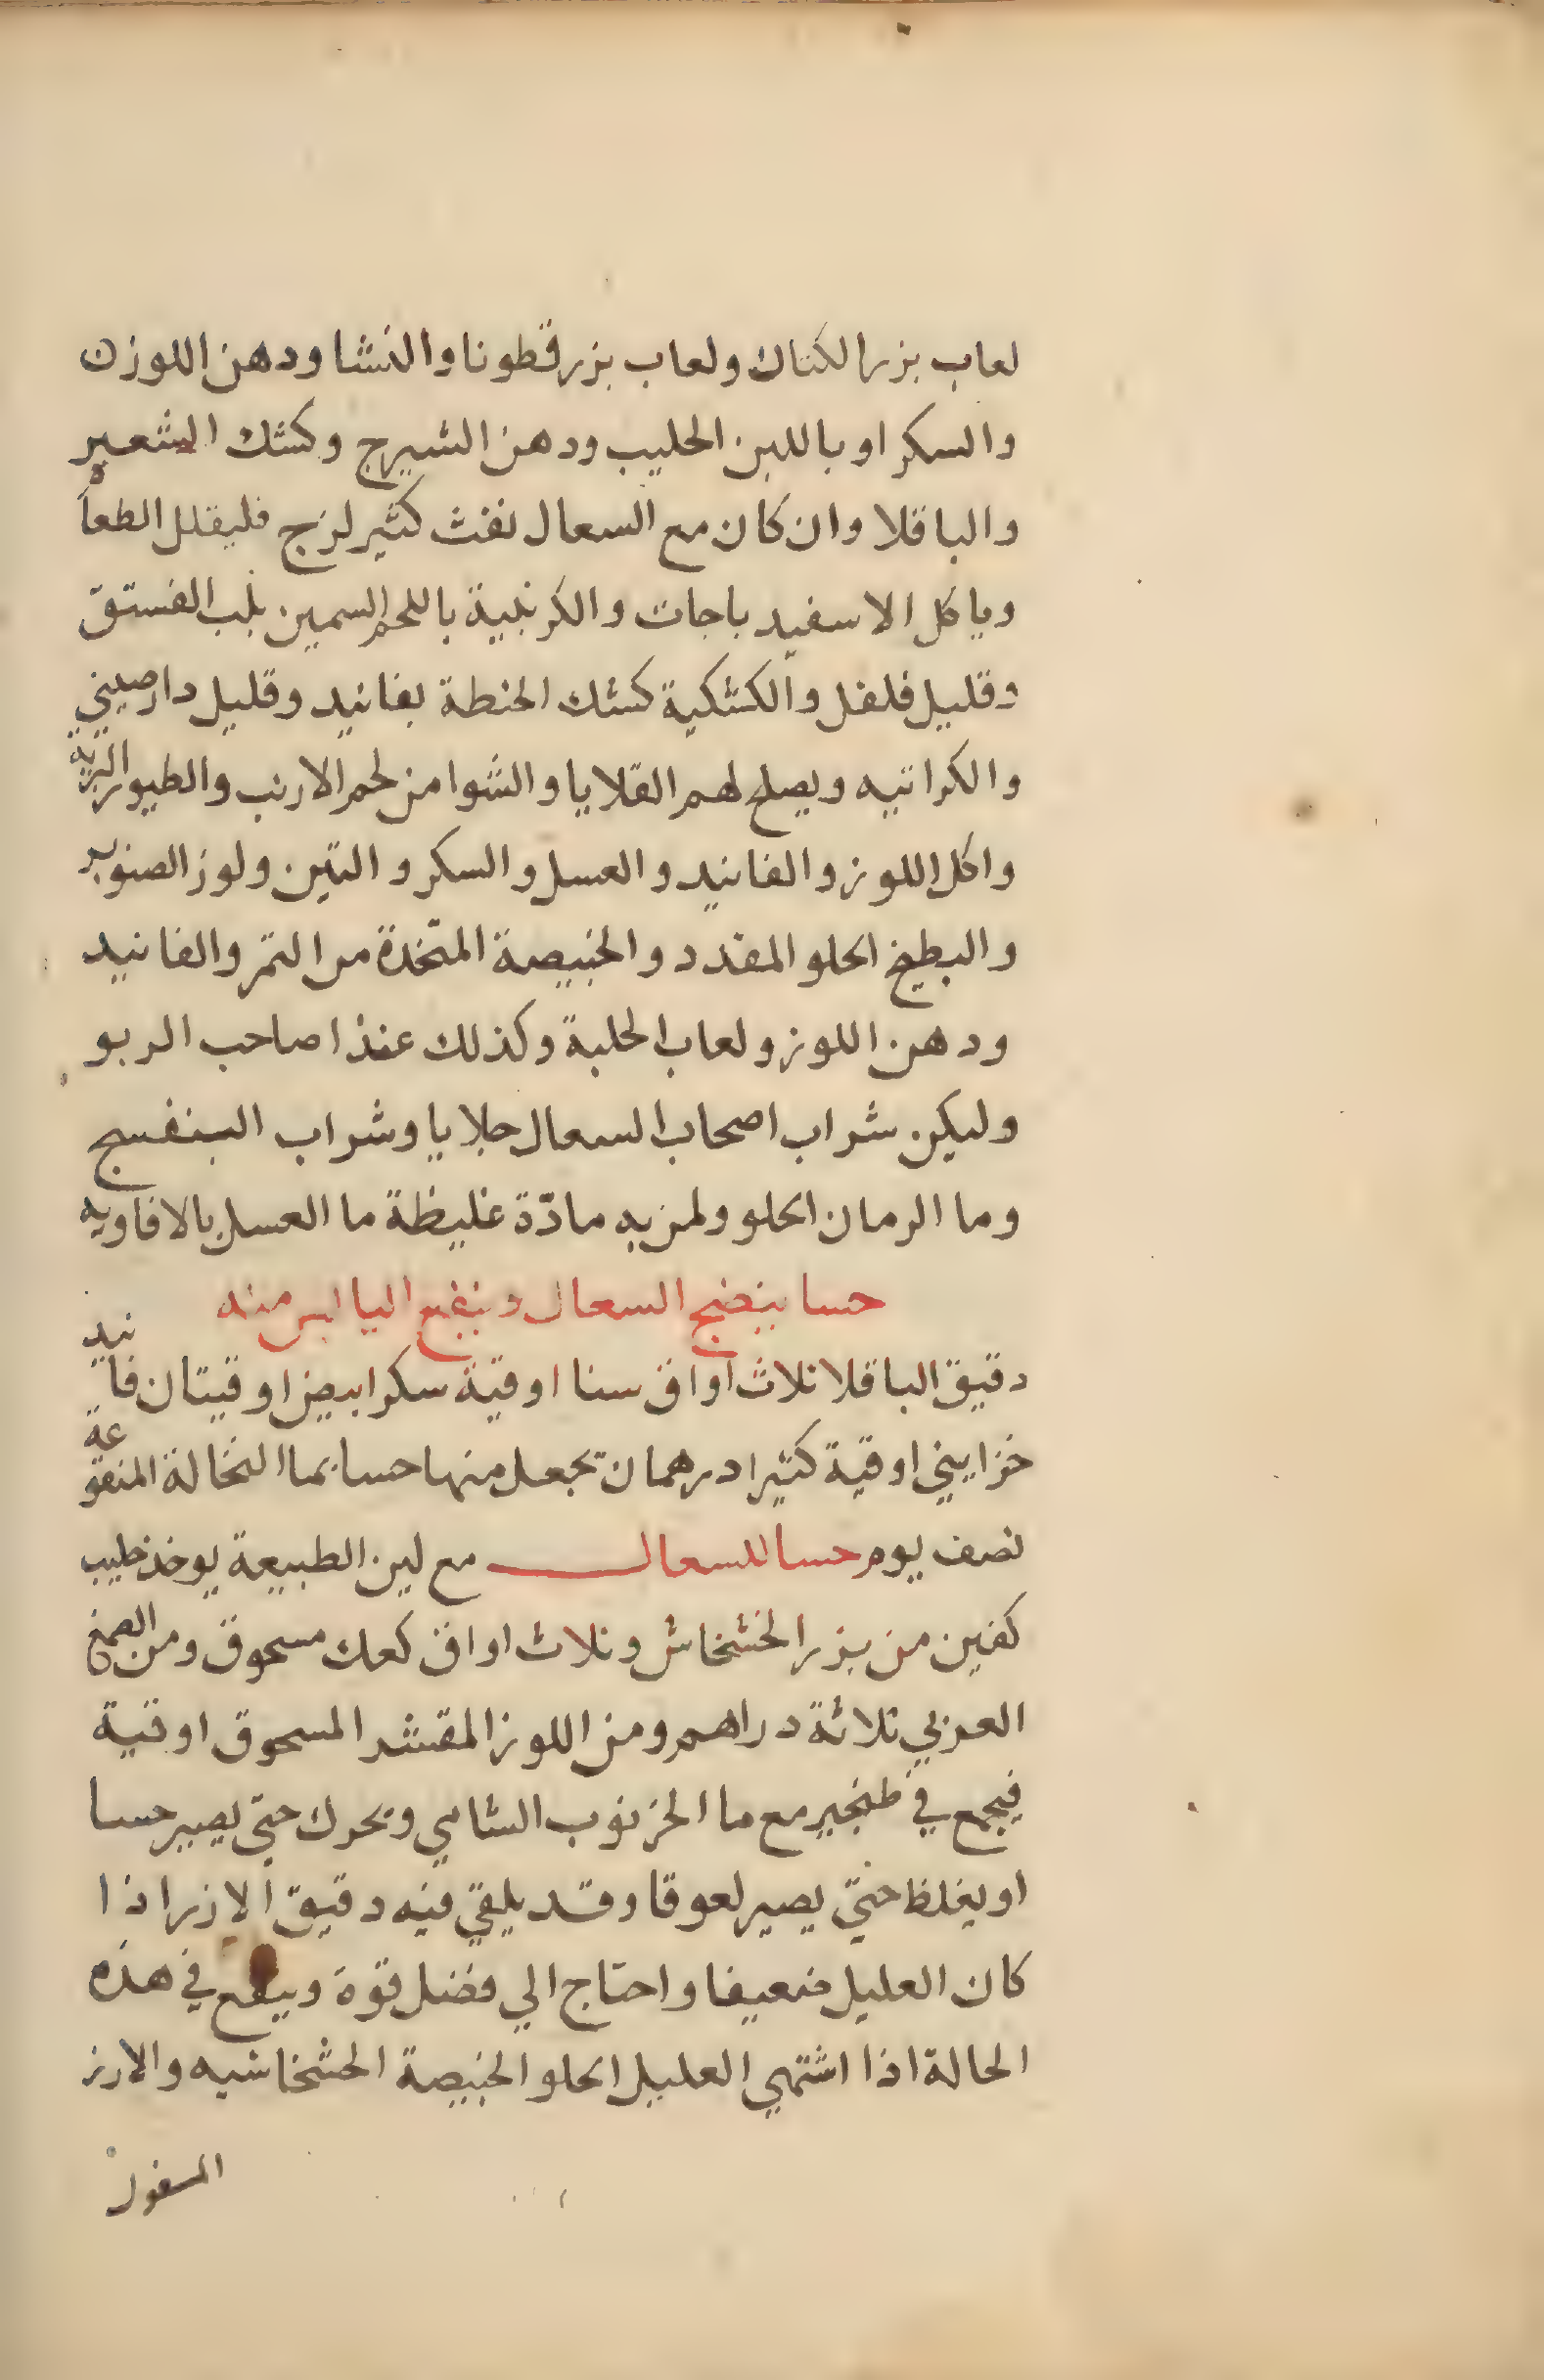 لعاب بزر الكتان ولعاب بزر قطونا والنشا ودهن اللوزن
والسكر او باللبن الحليب ودهن الشيرج وكشك الشعير
والباقلا وان كان مع السعال نفث كثير لزج فليقلل الطعام
وياكل الاسفيد باجات والكرنبية باللحم السمين بلب الفستق
وقليل فلفل والكشكية كشك الحنطة بفانيد وقليل دارصيني
والكراثيه ويصلح لهم القلايا والشوا من لحم الارنب والطيور البرية
واكل اللوز والفانيد والعسل والسكر والتين ولوز الصنوبر
والبطيخ الحلو المقدد والخبيصة المتخذة من التمر والفانيد
ودهن اللوز ولعاب الحلبة وكذلك غذا صاحب الربو
وليكن شراب اصحاب السعال جلابا وشراب البنفسج
وما الرمان الحلو ولمن به مادّة غليظة ما العسل بالافاويه
حسا ينضج السعال وينفع اليابس منه
دقيق الباقلا ثلاث اواق سنا اوقية سكر ابيض اوقيتان فانيد
خزايني اوقية كثيرا درهمان تجعل منها حسا بما النخالة المنقوعة
نصف يوم حسا للسعال مع لين الطبيعة يوخذ حليب
كفين من بزر الخشخاش وثلاث اواق كعك مسحوق ومن الصمغ
العربي ثلاثة دراهم ومن اللوز المقشر المسحوق اوقية
فيجمع في طنجير مع ما الخرنوب الشامي وتحرك حتى يصير حسا
او يغلظ حتى يصير لعوقا وقد يلقى فيه دقيق الارز اذا
كان العليل ضعيفا واحتاج الي فضل قوة وينفع في هذه
الحالة اذا اشتهي العليل الحلو الخبيصة الخشخاشيه والارز